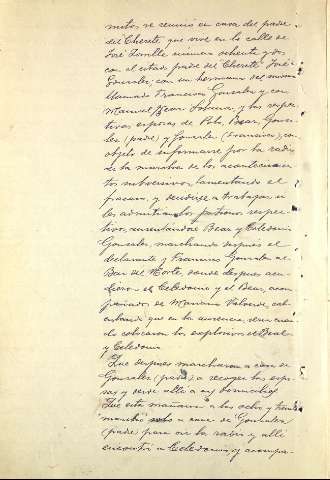 mitos se reunio en casa del padre
del Chereta que vive en la calle de
José Zorrilla número ochenta y dos
con el citado padre del Chereta José
Gonzalez, con un hermano del mismo
llamado Francisco Gonzalez y con
Manuel Bear y las respec-
tivas esposas de Polo, Bear, Gonza-
lez (padre) y Gonzalez (Francisco), con
objeto de informarse por la radio
de la marcha de los acontecimien-
tos subversivos, lamentando el
fracaso, y decidirse a trabajar, si
les admitian los patronos respec-
tivos, ausentandose Bear y Celedonio
Gonzalez, marchando despues el
declarante y Francisco Gonzalez al
Bar del Norte, donde despues acu-
dieron el Celedonio y el Bear, acom-
pañados de Mariano Valverde, cal-
culando que en la ausencia seria cuan-
do colocaron los explosivos el Bear
y Celedonio
Que despues marcharon a casa de
Gonzalez (padre), a recoger las espo-
sas y desde alli a su domicilio
Que esta mañana a las ocho y treinta
marchó solo a casa de Gonzalez
(padre) para oir la radio y alli
encontró a Celedonio y acompa-